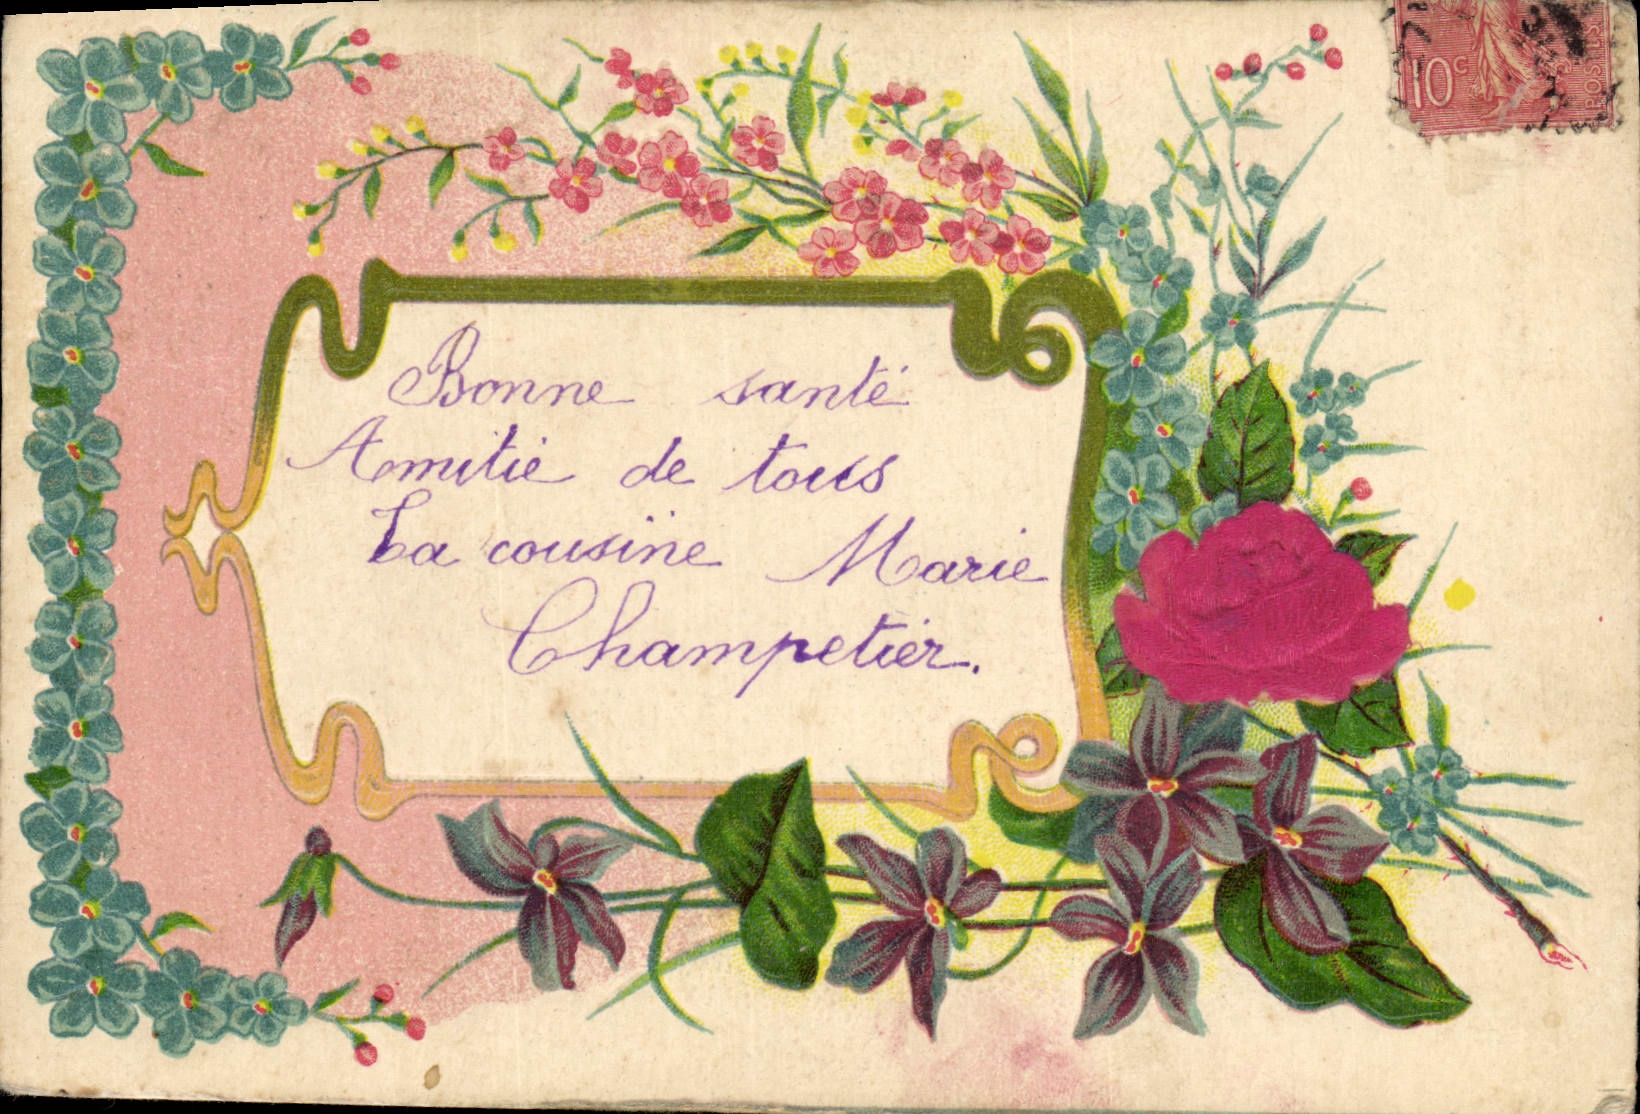 10c
POSTES
Bonne santé
Amitié de tous
La cousine Marie
Champetier.